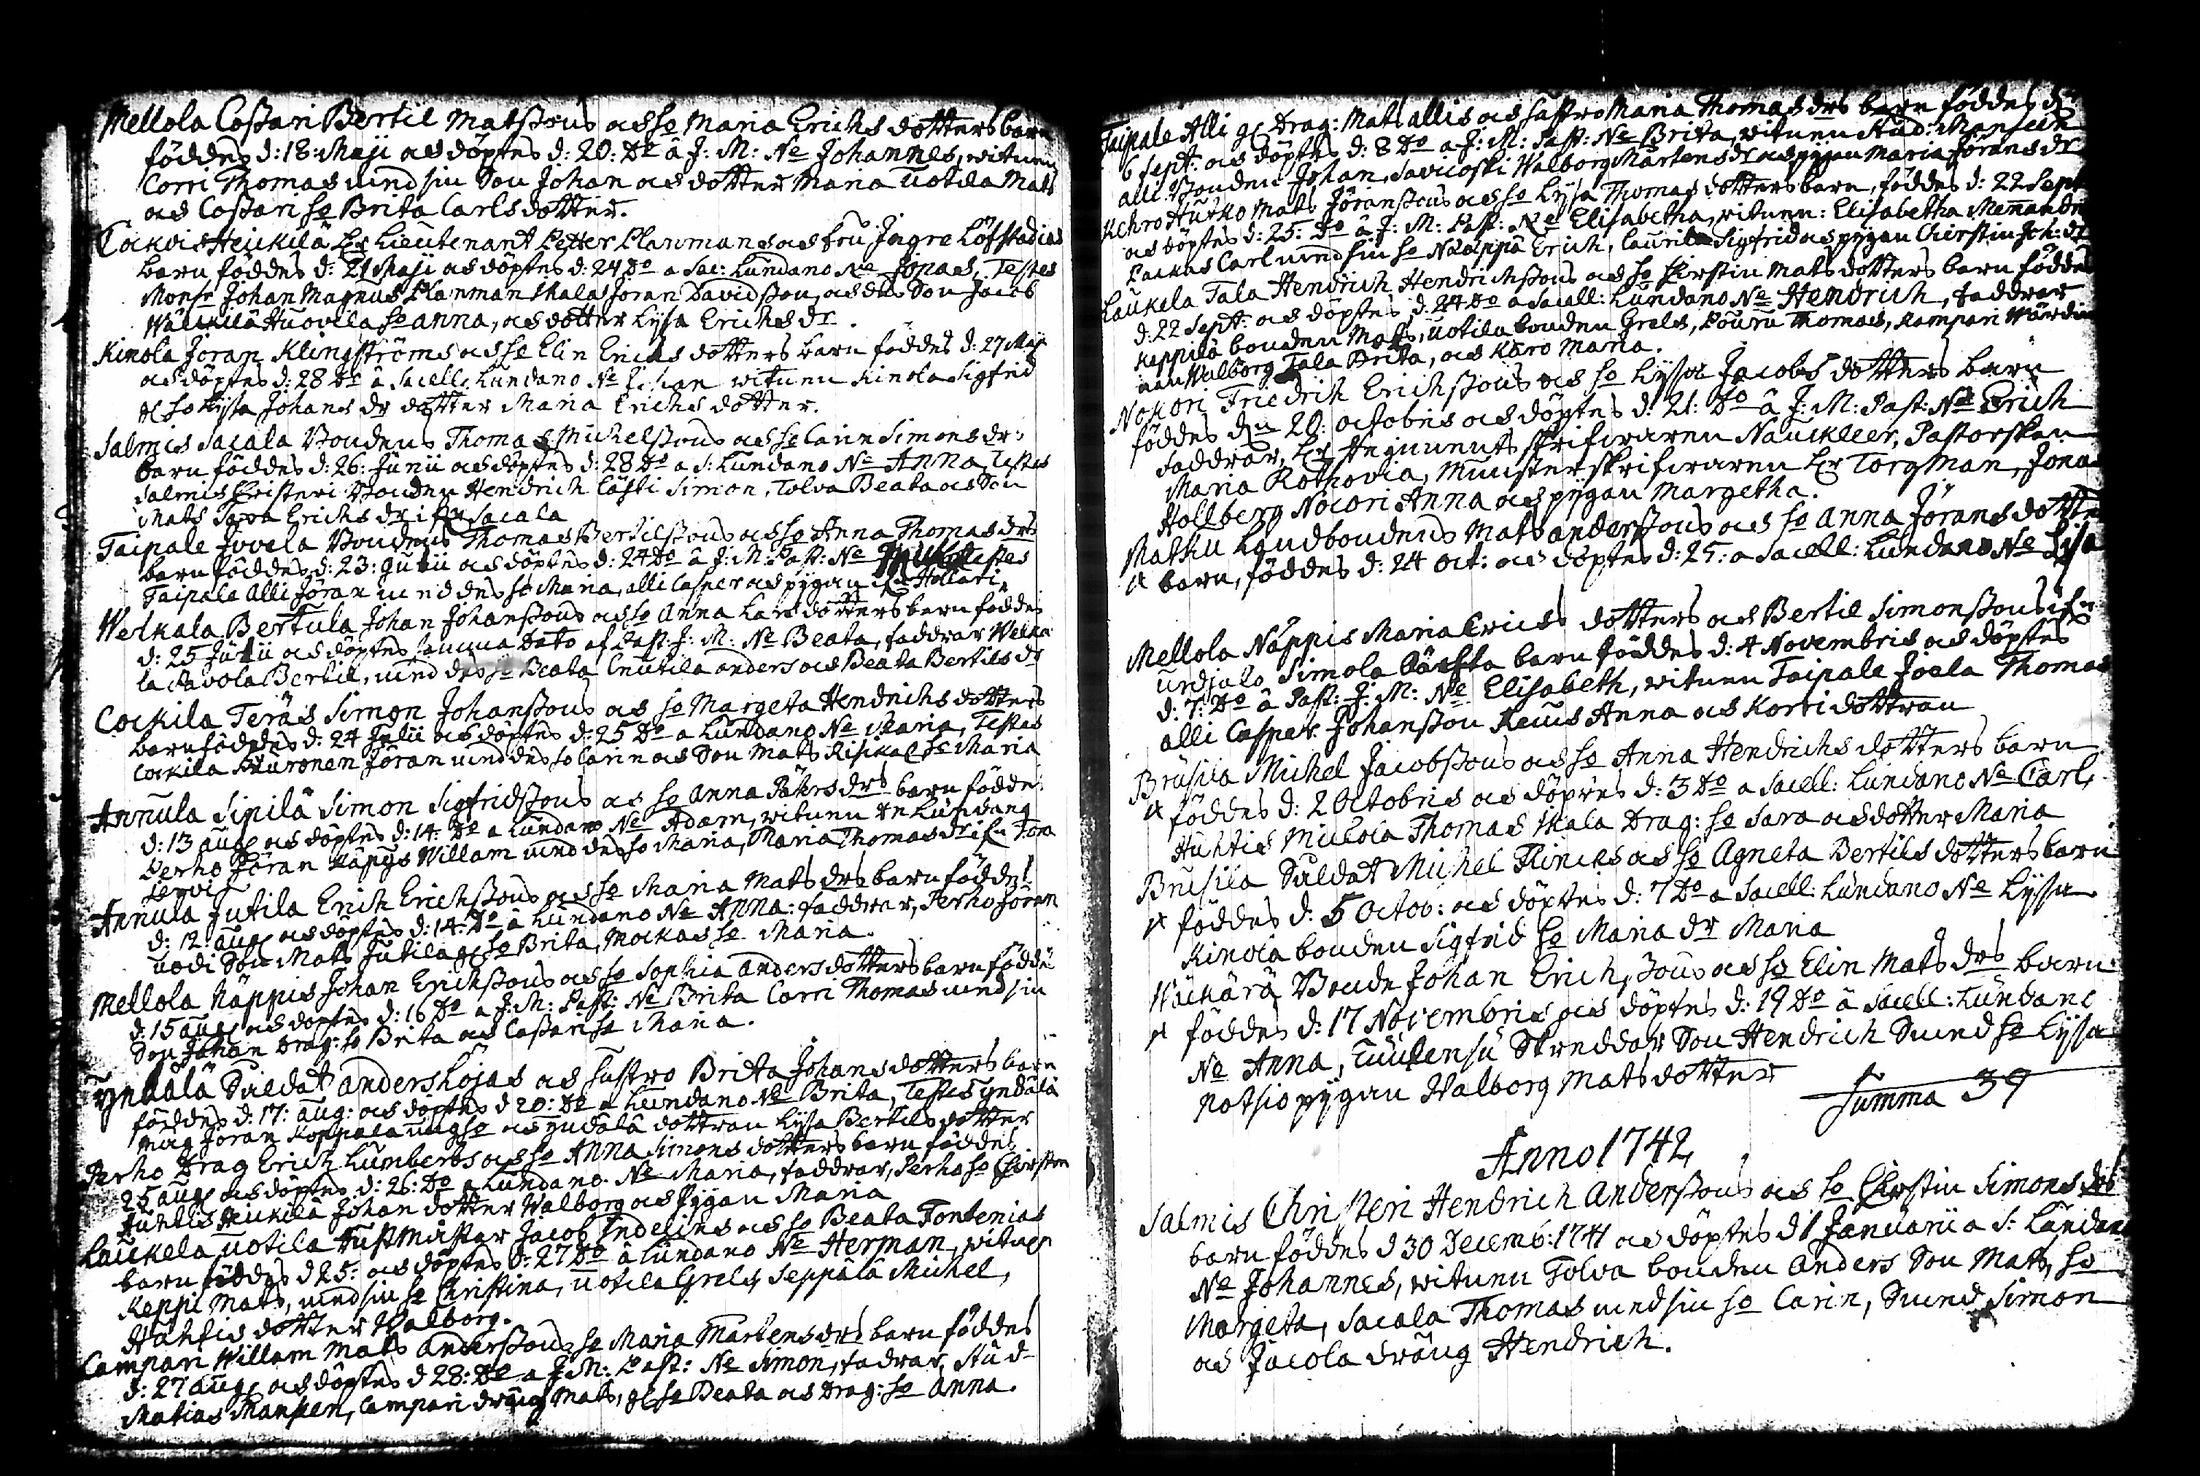 Mellola Cossari Bertil Matssons och ho Maria Erichs dotters barn
föddes d: 18: Maji och döptes d: 20: Do â J: M: Ne Johannes, wittnen
Corri Thomas med sin Son Johan och dotter Maria Uotila Mats
och Cossari ho Brita Carlsdotter.
Cackois Heickilä Hr Lieutenant Petter Planmans och fru Ingre Löfstadius
barn föddes d: 21 Maji och döptes d: 24 Do a Sac: Lundano Ne Jonas, Testes
Monsr Johan Magnus Planman Skala Jöran Davidsson, och des Son Jacob
Huovila ho Anna, och dotter Lysa Erichs dr.
Kinola Jöran Klingströms och ho Elin Erichs dotters barn föddes d: 27 Maji
och döptes d: 28 Do â Sacell: Lundano Ne Johan witnen Kinola Sigfrid
gl ho Lysa Johans dr dotter Maria Erichs dotter.
Salmis Sacala Bondens Thomas Michelssons och ho Carin Simons drs
barn föddes d: 26: Junii och döptes d: 28 Do a S: Lundano Ne Anna, Testes
Salmis Christeri Bonden Hendrich Simon, Tolva Beata och Son
Mats Erichs dr ifrn Sacala
Taipale Juvela Bondens Thomas Bertilssons och ho Anna Thomas drs
barn föddes d: 23: Julii och döptes d: 24 Do â J: M: Past: Ne Testes
Taipale Alli Jöran med des ho Maria, Alli Casper och pigan ifrn Hollari.
Werkala Bertula Johan Johanssons och ho Anna Lars dotters barn föddes
d: 25 Julii och döptes samma Dato af Past: J: M: Ne Beata, faddrar
Pavola Bertil, med des ho Beata Cnutila Anders och Beata Bertils dr
Cockila Teräs Simon Johanssons och ho Margeta Hendrichs dotters
barn föddes d: 24 Julii och döptes d: 25 Do a Lundano Ne Maria, Testes
Cockila Jöran med des ho Carin och Son Mats ho Maria
Annula Sipilä Simon Sigfridssons och ho Anna Påhrs drs barn föddes
d: 13 aug och döptes d: 14: Do a Lundano Ne Adam, witnen Lundang
Perho Jöran Willam med des ho Maria, Maria Thomas dr ifrn
Annula Jutila Erich Erichssons och ho Maria Mats drs barn föddes
d: 12: aug och döptes d: 14: Do â Lundano Ne Anna: faddrar, Perho Jöran
Uodi Son Mats Jutila gl ho Brita, Mockas ho Maria.
Mellola Näppis Johan Erichssons och ho Sophia Anders dotters barn föddes
d: 15 aug och döptes d: 16 Do a J: M: Past: Ne Brita Corri Thomas med sin
Son Johan Drag: ho Brita och Cossari ho Maria.
Yndälä Saldat Anders Löjas och hustro Brita Johans dotters barn
föddes d: 17: aug: och döptes d 20: Do a Lundano Ne Brita, Testes Yndälä
Jöran ung ho och Yndälä dottran Lysa Bertils dotter
Perho Drag Erich Lumbergs och ho Anna Simons dotters barn föddes
25 aug och döptes d: 26: Do a Lundano Ne Maria, faddrar, Perho ho Chirstin
Huhtis Heickilä Johan dotter Walborg och Pijgan Maria
Lauckela Uotila Hust Mäster Jacob Indelins och ho Beata Fontenias
barn föddes d 25: och döptes d: 27 Do â Lundano Ne Herman, witnen
Keppi Mats, med sin ho Christina, Uotila Grels, Seppälä Michel,
Huhtis dotter Walborg.
Campari Willam Mats Anderssons ho Maria Martens drs barn föddes
d: 27 aug och döptes d 28: Do a J: M: Past: Ne Simon, fadrar, Stud
Matias Mansken, Campari dräng Mats, gl ho Beata och Drag: ho Anna.
Taipale Alli gl Drag: Mats Allis och hustro Maria Thomas drs barn föddes d:
6 Sept: och döptes d: 8 Do a J: M: Past: Ne Brita, witnen Stud: Mansken
Alli Bonden Johan, Savicoski Walborg Mårtens dr och pijgan Maria Jörans dr
Kehro Hutko Mats Jöranssons och ho Lysa Thomas dotters barn, föddes d: 22 Sept
och döptes d: 25: Do â J: M: Past: Ne Elisabetha, witnen: Elisabetha
Packas Carl med sin ho Näappä Erich, Laurila Sigfrid och pijgan Chirstin Joh: dr
Laukela Tala Hendrich Hendrichssons och ho Chirstin Mats dotters barn föddes
d: 22 Sept: och döptes d: 24 Do a Sacell: Lundano Ne Hendrich, faddrar
Keppilä bonden Mats, Uotila bonden Grels, Pouru Thomas, Kampari
Walborg Tala Brita, och Karo Maria.
Nokori Friedrich Erichssons och ho Lysa Jacobs dotters barn
föddes den 20: octobris och döptes d: 21: Do â J: M: Past: Ne Erich
Faddrar, Hr Regements skrifwaren Nauckleer, Pastorskan
Maria Rothovia, Munsterskrifwaren Hr Torgman, Jonas
Hollberg Nocori Anna och pijgan Margetha.
Mathu Landbondens Mats Anderssons och ho Anna Jörans dotters
barn, föddes d: 24 oct: och döptes d: 25: a Sacell: Lundano Ne Lisa
Mellola Näppis Maria Erichs dotters och Bertil Simonssons ifrn
Urdjala Simola barn föddes d: 4 Novembris och döptes
d: 7: Do â Past: J: M: Ne Elisabeth, witnen Taipale Joela Thomas
Alli Casper Johansson Anna och Korri dottran
Brusila Michel Jacobssons och ho Anna Hendrichs dotters barn
föddes d: 2 Octobris och döptes d: 3 Do a Sacell: Lundano Ne Carl,
Huhtis Thomas Skala Drag: ho Sara och dotter Maria
Brusila Saldat Michel Flincks och ho Agneta Bertils dotters barn
föddes d: 5 Octob: och döptes d: 7 Do a Sacell: Lundano Ne Lysa
Kinola bonden Sigfrid ho Maria dr Maria
Bonde Johan Erich, Sons och ho Elin Mats drs barn
föddes d: 17 Novembris och döptes d: 19 Do â Sacell: Lundano
Ne Anna, Skreddar Son Hendrich Smeds ho Lysa
Notsio pygan Walborg Matsdotter
Summa 39
Anno 1742
Salmis Christeri Hendrich Anderssons och ho Chirstin Simons drs
barn föddes d 30 Decemb: 1741 och döptes d 1 Januarii a S: Lundano
Ne Johannes, witnen Tolva bonden Anders Son Mats, ho
Margeta, Sacala Thomas med sin ho Carin, Smed Simon
och Jacola dräng Hendrich.